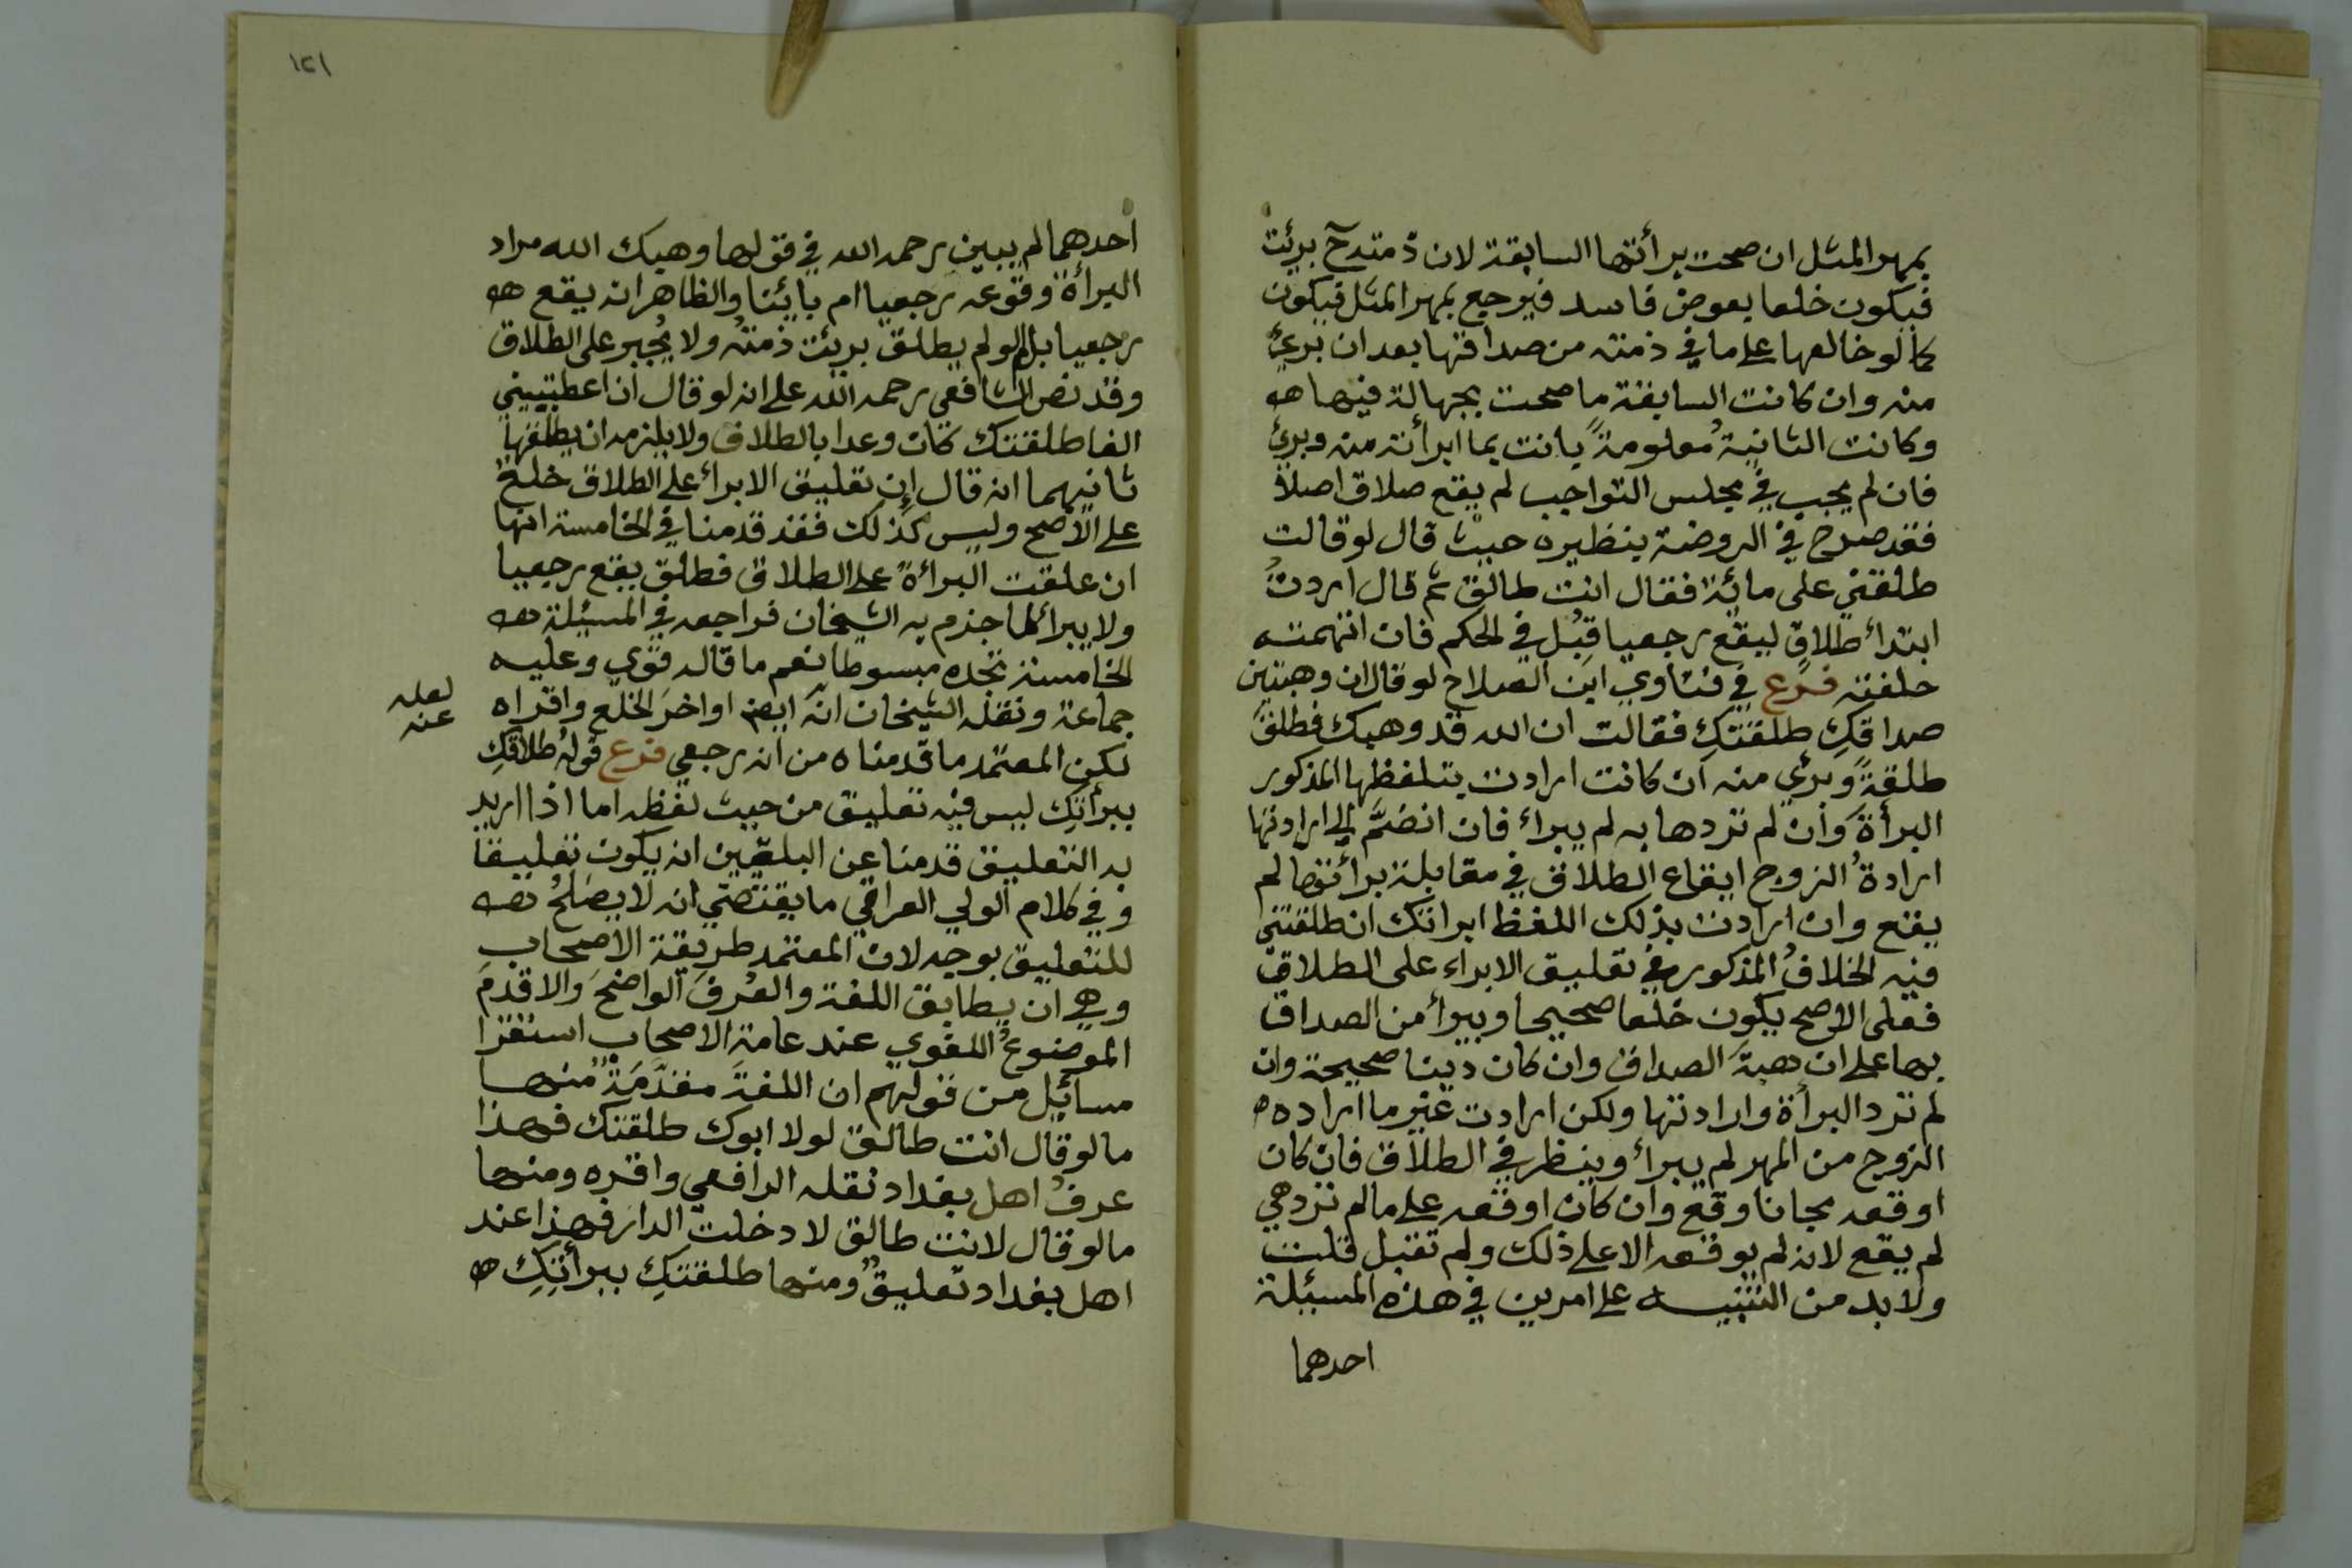 بمهر المثل ان صحت برأتها السابقة لان ذمته ح برئت
فيكون خلعا بعوض فاسد فيرجع بمهر المثل فيكون
كما لو خالعها على ما في ذمته من صداقها بعد ان برئ
منه وان كانت السابقة ما صحت بجهالة فيها
وكانت الثانيةُ معلومةً بانت بما ابرأته منه وبرئ
فان لم يجب في مجلس التواجب لم يقع صلاق اصلا
فقد صرح في الروضة بنظيره حيث قال لو قالت
طلقني على مائة فقال انت طالق ثم قال اردتُ
ابتدأ طلاقٍ ليقع رجعيا قُبل في الحكم فان اتهمته
حلفته فرع في فتاوي ابن الصلاح لو قال ان وهبتين
صداقكِ طلقتكِ فقالت ان الله قد وهبك فطلق
طلقةً وبرئ منه ان كانت ارادت بتلفظها المذكور
البرأة وان لم تردها به لم يبراء فان انضمَّ الى ارادتها
ارادةُ الزوج ايقاع الطلاق في مقابلة برأتها لم
يقع وان ارادت بذلك اللفظ ابراتك ان طلقتني
فيه الخلافُ المذكور في تعليق الابراء على الطلاق
فعلى الاصح يكون خلعا صحيحا ويبرأ من الصداق
بها على ان هبةَ الصداق وان كان دينا صحيحة وان
لم ترد البرأة وارادتها ولكن ارادت غير ما اراده
الزوج من المهر لم يبراء وينظر في الطلاق فان كان
اوقعه مجانا وقع وان كان اوقعه على ما لم ترد هي
لم يقع لانه لم يوقعه الا على ذلك ولم تقبل قلت
ولا بد من التنبيه على امرين في هذه المسئلة
احدهما
١٢١
احدهما لم يبين رحمه الله في قولها وهبك الله مراد
البرأة وقوعه رجعيا ام بائنا والظاهر انه يقع
رجعيا بل لو لم يطلق برئت ذمتُه ولا يُجبر على الطلاق
وقد نص الشافعي رحمه الله على انه لو قال ان اعطيتيني
الفا طلقتك كان وعدا بالطلاق ولا يلزمه ان يطلقها
ثانيهما انه قال إن تعليق الابراء على الطلاق خلع
على الاصح وليس كذلك فقد قدمنا في الخامسة انها
ان علقت البرائة على الطلاق فطلق يقع رجعيا
ولا يبرأ كما جزم به الشيخان فراجعه في المسئلة
الخامسة تجده مبسوطا نعم ما قاله قوي وعليه
جماعة ونقله الشيخان انه ايضا اواخرَ الخلع واقراه
لعله
عنه
لكن المعتمد ما قدمناه من انه رجعي فرع قولهُ طلاقكِ
ببرأتكِ ليس فيه تعليق من حيث لفظه اما اذا اريد
به التعليق قدمنا عن البلقيين انه يكون تعليقا
وفي كلام الولي العراقي ما يقتضي انه لا يصلحُ
للتعليق بوجه لان المعتمد طريقة الاصحاب
وهي ان يطابق اللغة والعُرفَ الواضحَ والاقدمَ
الموضوعُ اللغوي عند عامة الاصحاب استقرا
مسائل من قولهم ان اللغةَ مقدَّمَةٌ منها
ما لو قال انت طالق لولا ابوك طلقتك فهذا
عرفُ اهل بغداد نقله الرافعي واقره ومنها
ما لو قال لانت طالق لا دخلت الدار فهذا عند
اهل بغداد تعليقٌ ومنها طلقتكِ ببرأتكِ